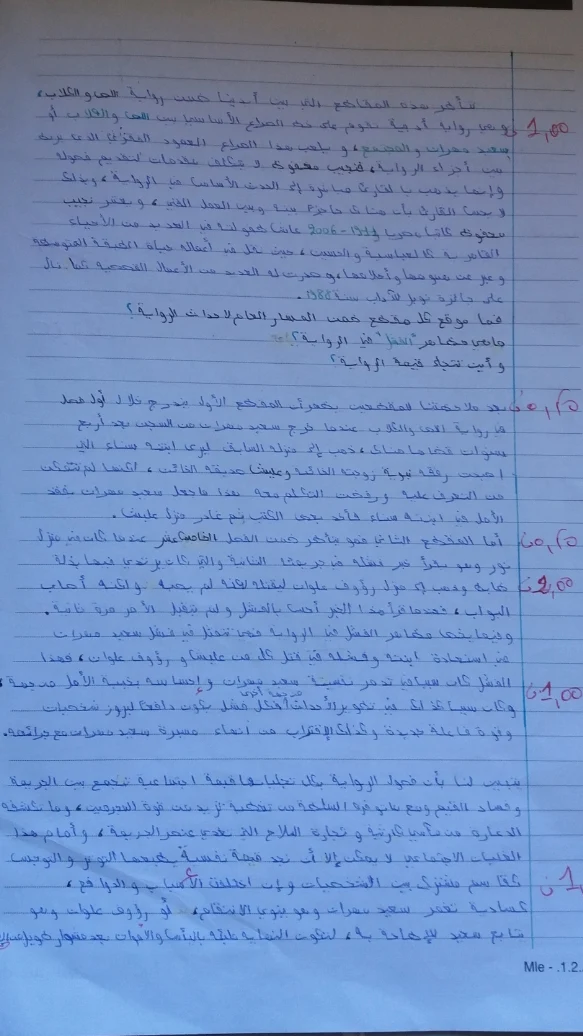 تتأطر هذه المقاطع التي بين أيدينا ضمن رواية اللص والكلاب،
وهي رواية أدبية تقوم على الصراع الأساسي بين اللص والكلاب أو
1,00
سعيد مهران والمجتمع، و هذا الصراع العمود الفقري الذي يربط
بين أجزاء الرواية، فنجيب محفوظ لا يتكلف مقدمات لتقديم فصوله
وإنما يذهب بالقارئ مباشرة إلى الحدث الأساسي في الرواية، وبذلك
لا يحس القارئ بأن هناك حاجزا بينه وبين العمل الفني، ويعتبر نجيب
محفوظ كاتبا مصريا 1911-2006 عاش طفولته في العديد من الأحياء
القاهرية كالعباسية والحسين، حيث نقل في أعماله حياة الطبقة المتوسطة
وعبر عن همومها وأحلامها، وصدرت له العديد من الأعمال القصصية كما نال
على جائزة نوبل للآداب سنة 1988.
فما موقع كل مقطع ضمن المسار العام لأحداث الرواية؟
ما هي مظاهر "الفشل" في الرواية؟
وأين تتجلى قيمة الرواية؟
بعد ملاحظتنا للمقطعين يظهر أن المقطع الأول يندرج خلال أول فصل
في رواية اللص والكلاب عندما خرج سعيد مهران من السجن بعد أربع
سنوات قضاها هناك، ذهب إلى منزله السابق ليرى ابنته سناء التي
أصبحت رفقة نبوية زوجته الخائنة وعليش صديقه الخائن، لكنها لم تتمكن
من التعرف عليه ورفضت التكلم معه هذا ما جعل سعيد مهران يفقد
الأمل في ابنته سناء فأخذ بعض الكتب ثم غادر منزل عليش.
أما المقطع الثاني فهو يتأطر ضمن الفصل الخامس عشر عندما كان في منزل
نور وهو يقرأ خبر فشله في جريمته الثانية والتي كان يرتدي فيها بذلة
2,00
ضابط وذهب إلى منزل رؤوف علوان ليقتله لكنه لم يصبه ولكنه أصاب
البواب، فعندما قرأ هذا الخبر أحس بالفشل ولم يتقبل الأمر مرة ثانية.
وفيما يخص مظاهر الفشل في الرواية فهي تتمثل في فشل سعيد مهران
في استعادة ابنته وفشله في قتل كل من عليش و رؤوف علوان، فهذا
الفشل كان سببا في تدمر نفسية سعيد مهران وإحساسه بخيبة الأمل من جهة،
من جهة أخرى
1,00
وكان سببا كذلك في تطوير الأحداث فكل فشل يكون دافعا لبروز شخصيات
وقوة فاعلة جديدة وكذلك الإقتراب من انهاء مسيرة سعيد مهران مع جرائمه.
يتبين لنا بأن فصول الرواية بكل تجلياتها قيمة اجتماعية تجمع بين الجريمة
وفساد القيم ومع غياب قوة السلطة من تغطية تزيد من قوة المجرمين، وما تكشفه
الدعارة من مآسي كارثية و تجارة السلاح التي تغذي عنصر الجريمة، وأمام هذا
الغليان الاجتماعي لا يمكن إلا أن نجد قيمة نفسية يطبعها التوتر والتوجس
كقاسم مشترك بين الشخصيات وإن اختلفت الأسباب والدوافع،
كسادية تغمر سعيد مهران وهو ينوي الانتقام، أو رؤوف علوان وهو
يتابع سعيد للإطاحة به، لتكون النهاية مليئة باليأس والأموات بعد مشوار طويل
Mle - .1.2.